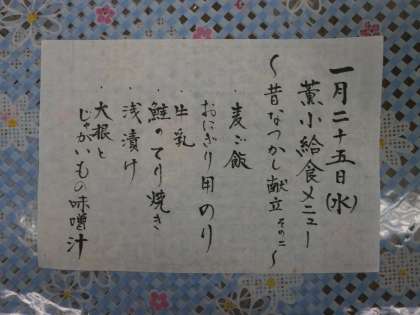 一月二十五日(水)
薫小給食メニュー
〜昔なつかし献立その二〜
・麦ご飯
おにぎり用のり
・牛乳
・鮭のてり焼き
・浅漬け
・大根と
じゃがいもの味噌汁